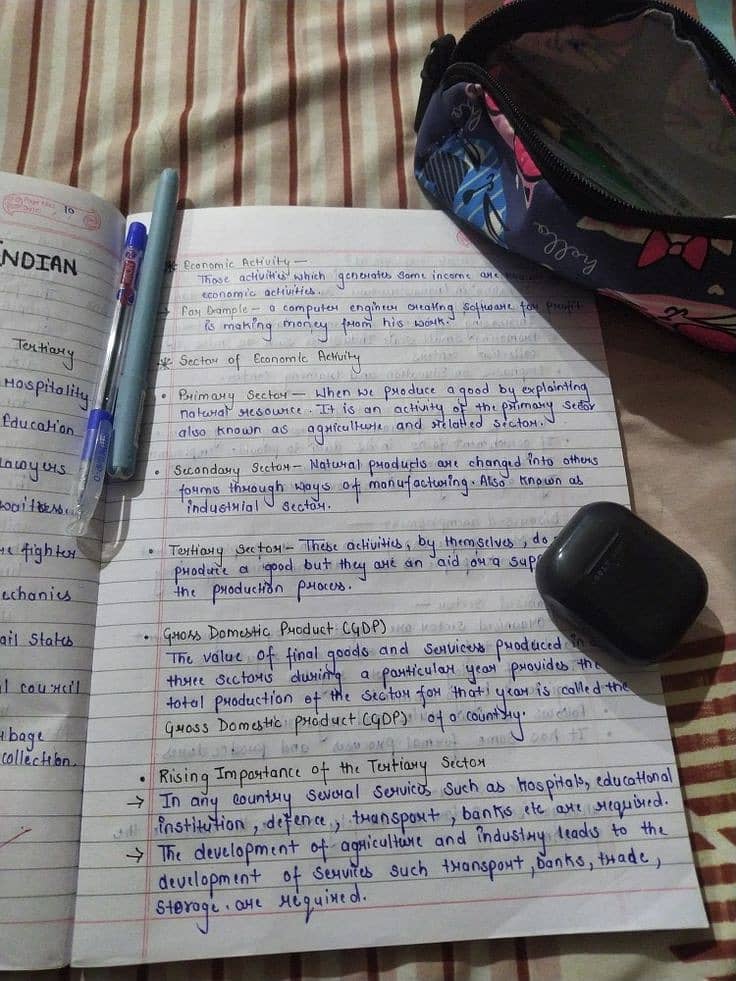 Page No. 10
Date:
INDIAN
Tertiary
Hospitality
Education
Lawyers
echanics
ail States
collection.
hello
* Economic Activity —
Those activities which generates some income are
economic activities.
→ For Example – a computer engineer creating software for profit
is making money from his work.
* Sector of Economic Activity
• Primary Sector — When we produce a good by explointing
natural resource. It is an activity of the primary sector
also known as agriculture and related sector.
• Secondary Sector – Natural products are changed into others
forms through ways of manufacturing. Also known as
industrial sector.
• Tertiary Sector – These activities, by themselves, do
produce a good but they are an aid or a sup
the production process.
• Gross Domestic Product (GDP)
The value of final goods and services produced in
three sectors during a particular year provides the
total production of the sector for that year is called the
Gross Domestic product (GDP) of a country.
• Rising Importance of the Tertiary Sector
→ In any country several services such as hospitals, educational
institution, defence, transport, banks etc are required.
→ The development of agriculture and industry leads to the
development of services such transport, banks, trade,
storage. are required.